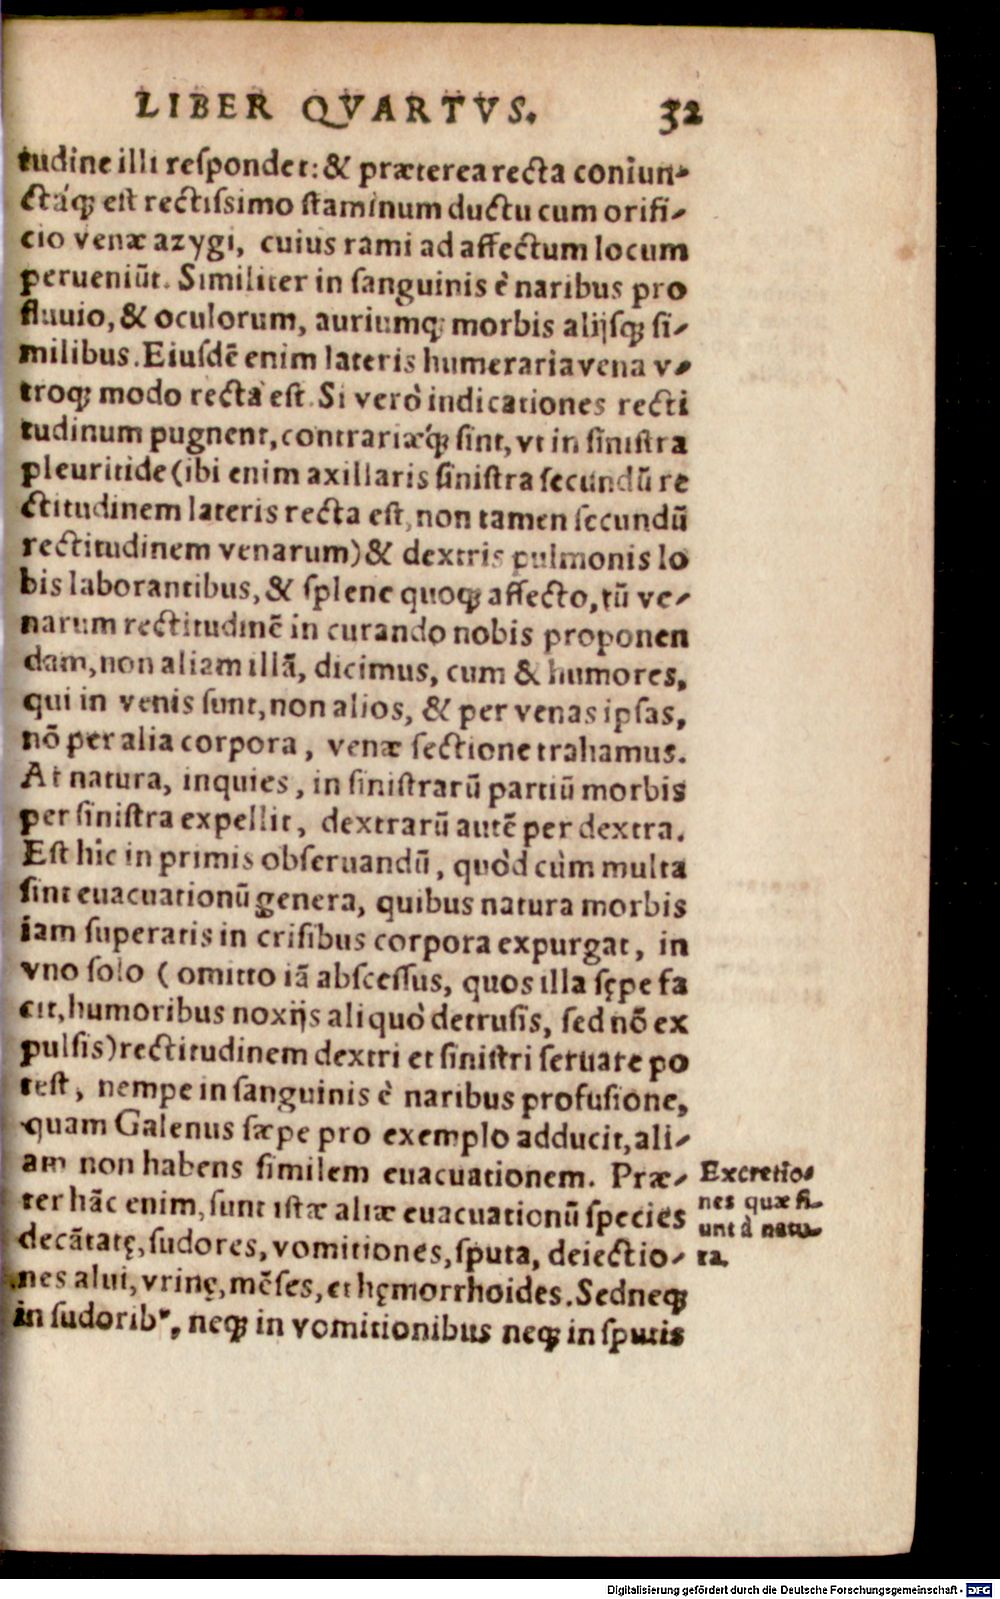 LIBER QVARTVS. 32
tudine illi reſpondet: & præterea recta coniun-
ctáq; est rectiſsimo ſtaminum ductu cum orifi-
cio venæ azygi, cuius rami ad affectum locum
perueniūt. Similiter in ſanguinis è naribus pro
fluuio, & oculorum, auriumq; morbis alijſq; ſi-
milibus. Eiuſdē enim lateris humeraria vena v-
troq; modo recta est. Si verò indicationes recti
tudinum pugnent, contrariæq́; ſint, vt in ſiniſtra
pleuritide (ibi enim axillaris ſiniſtra ſecundū re
ctitudinem lateris recta eſt, non tamen ſecundū
rectitudinem venarum) & dextris pulmonis lo
bis laborantibus, & ſplene quoq; affecto, tū ve-
narum rectitudinē in curando nobis proponen
dam, non aliam illā, dicimus, cum & humores,
qui in venis ſunt, non alios, & per venas ipſas,
nō per alia corpora, venæ ſectione trahamus.
At natura, inquies, in ſiniſtrarū partiū morbis
per ſiniſtra expellit, dextrarū autē per dextra.
Eſt hîc in primis obſeruandū, quòd cùm multa
ſint euacuationū genera, quibus natura morbis
iam ſuperatis in criſibus corpora expurgat, in
vno ſolo (omitto iā abſceſſus, quos illa ſępe fa
cit, humoribus noxijs aliquò detruſis, ſed nō ex
pulſis) rectitudinem dextri et ſiniſtri ſeruare po
teſt, nempe in ſanguinis è naribus profuſione,
quam Galenus ſæpe pro exemplo adducit, ali-
am non habens ſimilem euacuationem. Præ-
ter hāc enim, ſunt iſtæ aliæ euacuationū ſpecies
decātatę, ſudores, vomitiones, ſputa, deiectio-
nes alui, vrinę, mēſes, et hęmorrhoides. Sed neq;
in ſudorib⁹, neq; in vomitionibus neq; in ſputis
Excretio-
nes quæ fi-
unt à natu-
ra.
Digitalisierung gefördert durch die Deutsche Forschungsgemeinschaft - DFG